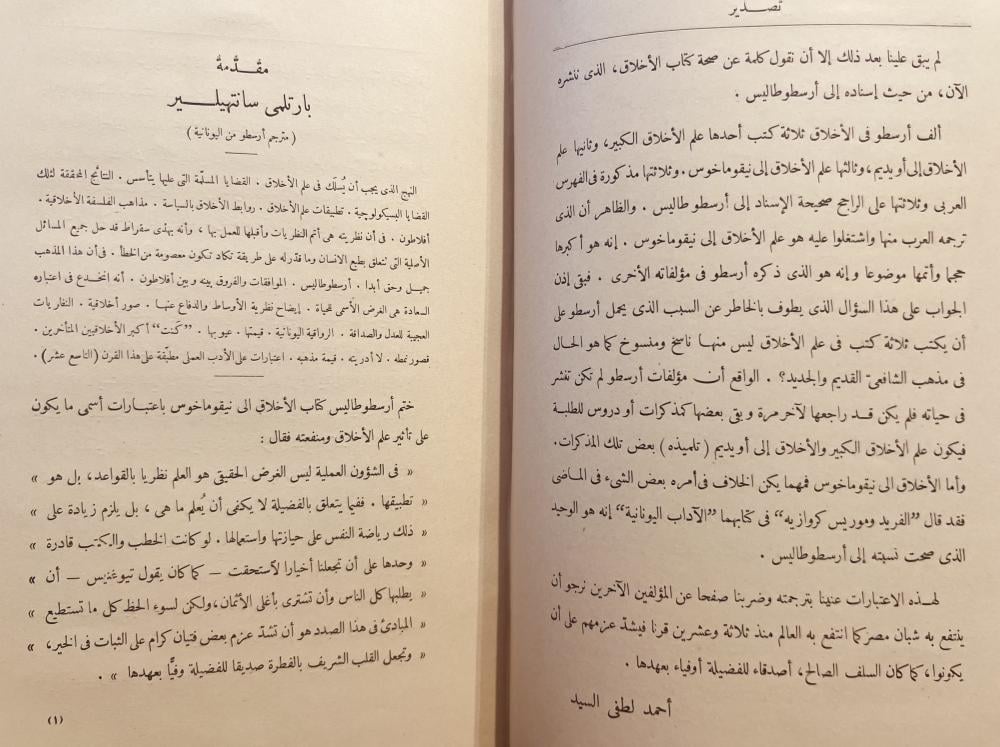 تصدير
لم يبق علينا بعد ذلك إلا أن نقول كلمة عن صحة كتاب الأخلاق، الذى ننشره
الآن، من حيث إسناده إلى أرسطوطاليس .
ألف أرسطو فى الأخلاق ثلاثة كتب أحدها علم الأخلاق الكبير، وثانيها علم
الأخلاق إلى أويديم، وثالثها علم الأخلاق إلى نيقوماخوس . وثلاثتها مذكورة فى الفهرس
العربى وثلاثتها على الراجح صحيحة الإسناد إلى أرسطو طاليس . والظاهر أن الذى
ترجمه العرب منها واشتغلوا عليه هو علم الأخلاق إلى نيقوماخوس . إنه هو أكبرها
حجما وأتمها موضوعا وإنه هو الذى ذكره أرسطو فى مؤلفاته الأخرى . فبقى إذن
الجواب على هذا السؤال الذى يطوف بالخاطر عن السبب الذى يحمل أرسطو على
أن يكتب ثلاثة كتب فى علم الأخلاق ليس منها ناسخ ومنسوخ كما هو الحال
فى مذهب الشافعىّ القديم والجديد؟ . الواقع أن مؤلفات أرسطو لم تكن تنشر
فى حياته فلم يكن قد راجعها لآخر مرة وبقى بعضها كمذكرات أو دروس للطلبة
فيكون علم الأخلاق الكبير والأخلاق إلى أويديم (تلميذه) بعض تلك المذكرات.
وأما الأخلاق الى نيقوماخوس فمهما يكن الخلاف فى أمره بعض الشىء فى الماضى
فقد قال "الفريد وموريس كروازيه" فى كتابهما "الآداب اليونانية" إنه هو الوحيد
الذى صحت نسبته إلى أرسطوطاليس .
لهذه الاعتبارات عنينا بترجمته وضربنا صفحا عن المؤلفين الآخرين نرجو أن
ينتفع به شبان مصر كما انتفع به العالم منذ ثلاثة وعشرين قرنا فيشدّ عزمهم على أن
يكونوا، كما كان السلف الصالح، أصدقاء للفضيلة أوفياء بعهدها .
أحمد لطفى السيد
مقدّمة
بارتلمى سانتهيلير
(مترجم أرسطو من اليونانية)
النهج الذى يجب أن يُسلَك فى علم الأخلاق . القضايا المسلّمة التى عليها يتأسس . النتائج المحققة لتلك
القضايا البسيكولوجية . تطبيقات علم الأخلاق . روابط الأخلاق بالسياسة . مذاهب الفلسفة الأخلاقية .
أفلاطون . فى أن نظريته هى أتم النظريات وأقبلها للعمل بها ، وأنه بهدى سقراط قد حل جميع المسائل
الأصلية التى تتعلق بطبع الانسان وما قدّر له على طريقة تكاد تكون معصومة من الخطأ . فى أن هذا المذهب
جميل وحق أبدا . أرسطوطاليس . الموافقات والفروق بينه وبين أفلاطون . أنه انخدع فى اعتباره
السعادة هى الغرض الأسمى للحياة . إيضاح نظرية الأوساط والدفاع عنها . صور أخلاقية . النظريات
العجيبة للعدل والصداقة . الرواقية اليونانية . قيمتها . عيوبها . "كَنت" أكبر الأخلاقيين المتأخرين .
قصور نمطه . لا أدريته . قيمة مذهبه . اعتبارات على الأدب العملى مطبّقة على هذا القرن (التاسع عشر) .
ختم أرسطوطاليس كتاب الأخلاق الى نيقوماخوس باعتبارات أسمى ما يكون
على تأثير علم الأخلاق ومنفعته فقال :
« فى الشؤون العملية ليس الغرض الحقيقى هو العلم نظريا بالقواعد، بل هو »
« تطبيقها . ففيما يتعلق بالفضيلة لا يكفى أن يُعلم ما هى ، بل يلزم زيادة على »
« ذلك رياضة النفس على حيازتها واستعمالها . لو كانت الخطب والكتب قادرة »
« وحدها على أن تجعلنا أخيارا لاستحقت — كما كان يقول تيوغنيس — أن »
« يطلبها كل الناس وأن تشترى بأغلى الأثمان، ولكن لسوء الحظ كل ما تستطيع »
« المبادئ فى هذا الصدد هو أن تشدّ عزم بعض فتيان كرام على الثبات فى الخير، »
« وتجعل القلب الشريف بالفطرة صديقا للفضيلة وفيًّا بعهدها » .
(١)